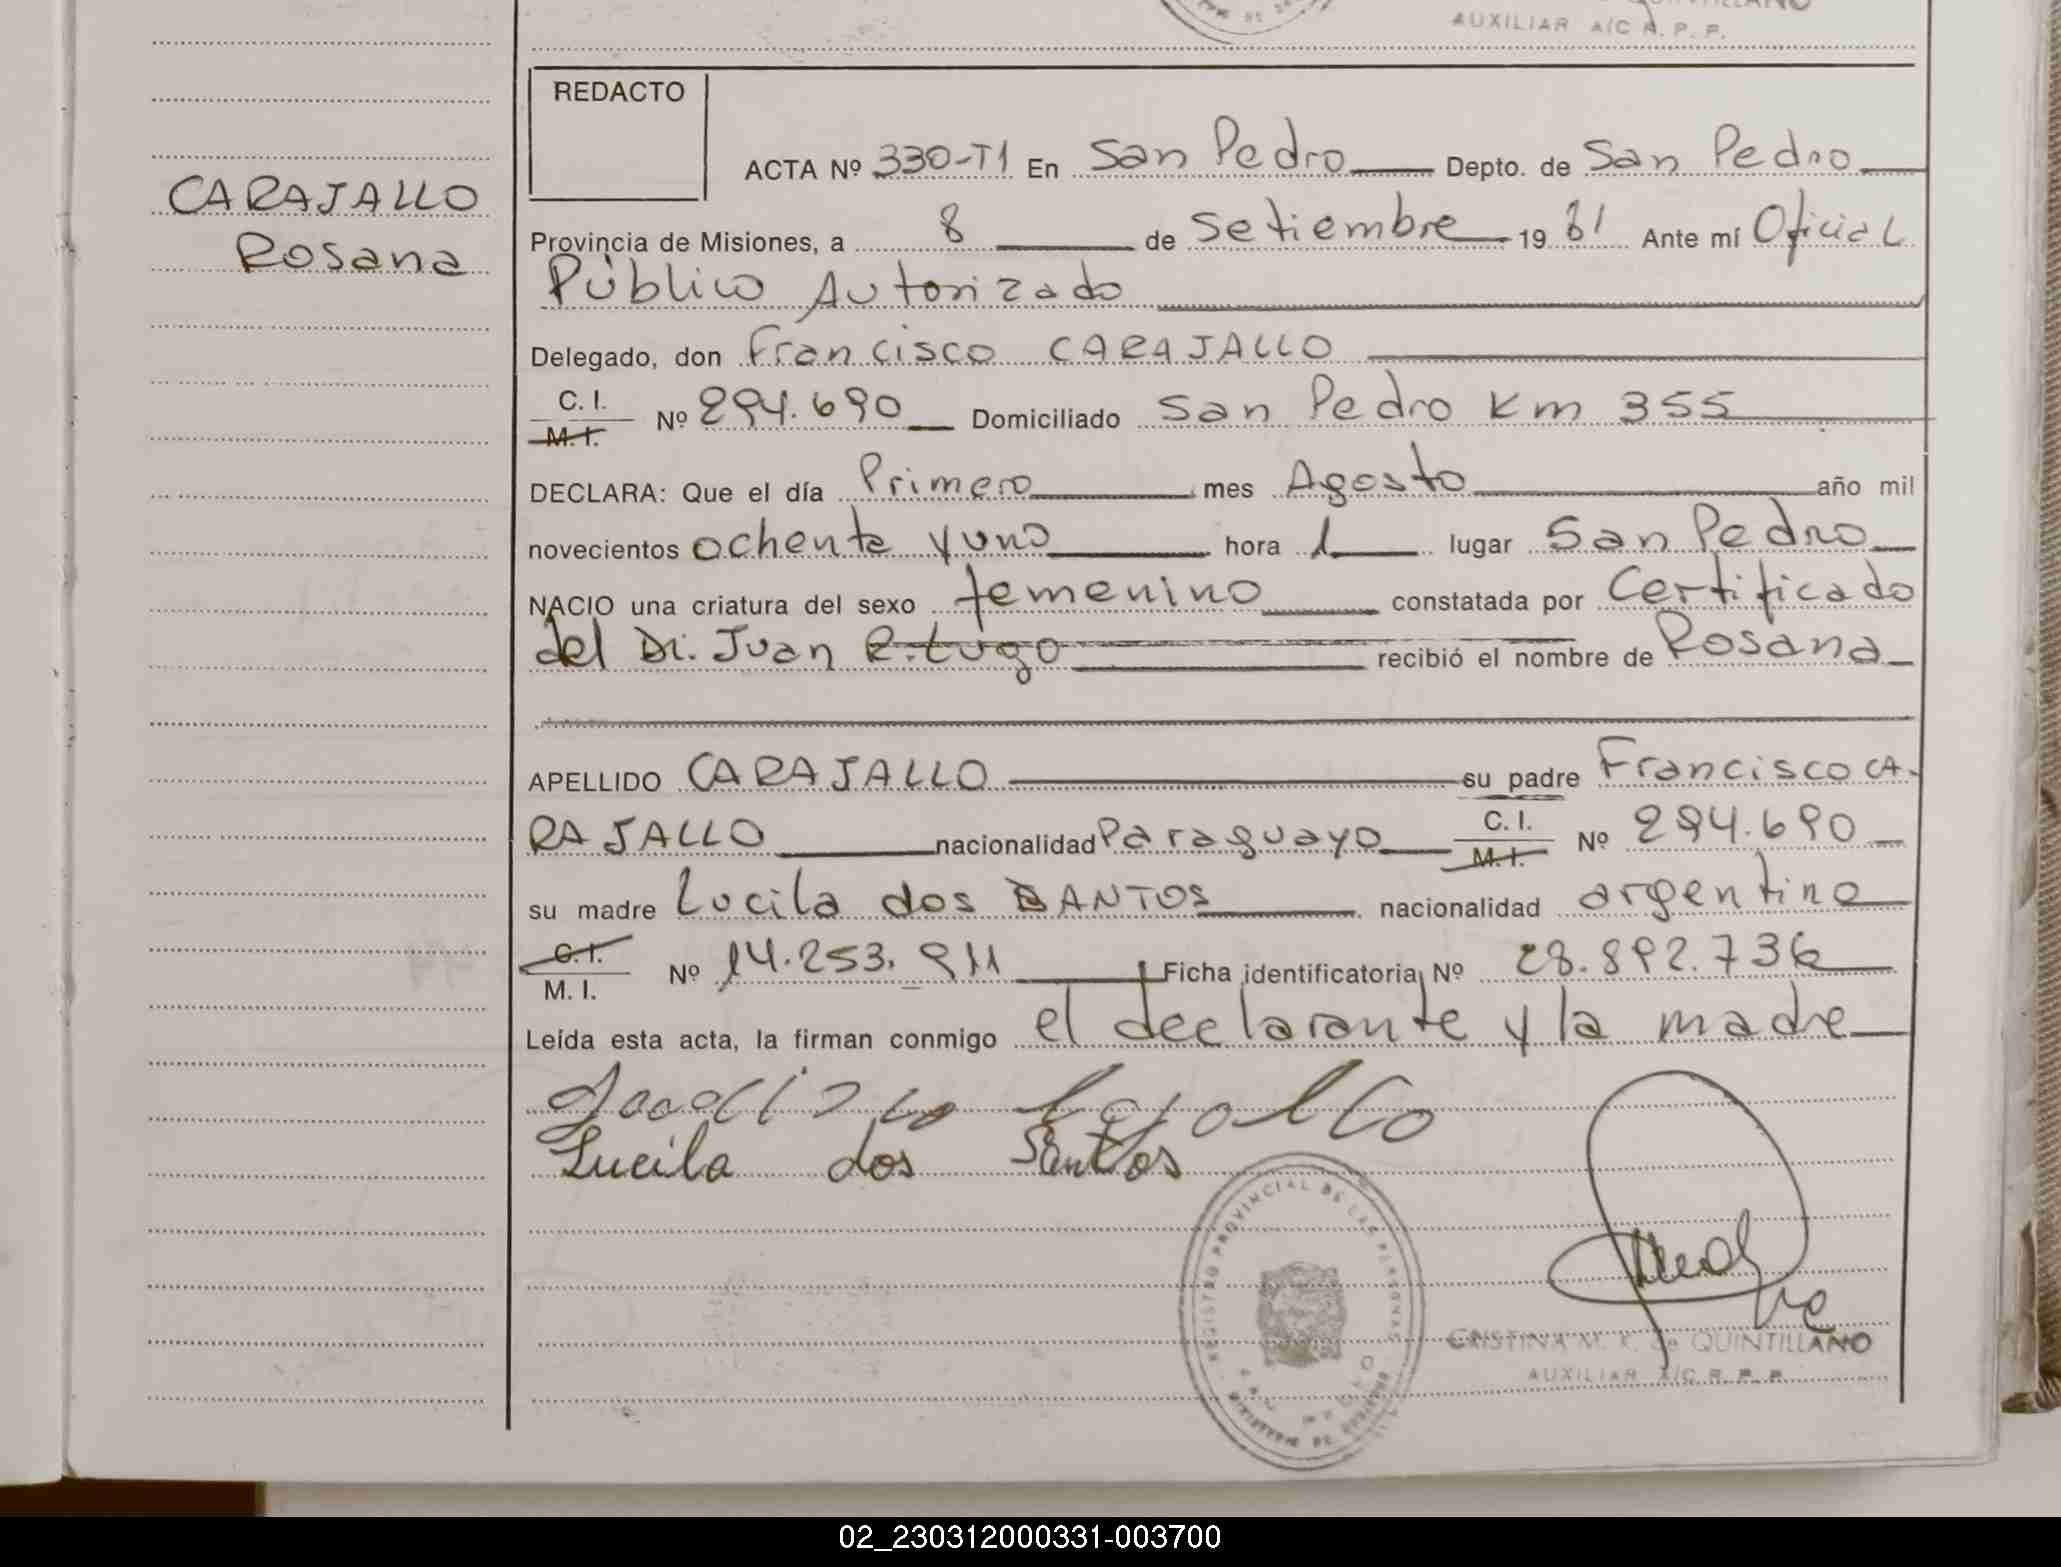 AUXILIAR A/C R. P. P.
REDACTO
ACTA Nº 330-T1 En San Pedro Depto. de San Pedro
CARAJALLO
Rosana
Provincia de Misiones, a 8 de Setiembre 19 81 Ante mí Oficial
Público Autorizado
Delegado, don Francisco CARAJALLO
C. I.
M. I.
Nº 294.690 Domiciliado San Pedro Km 355
DECLARA: Que el día Primero mes Agosto año mil
novecientos ochenta y uno hora 1 lugar San Pedro
NACIO una criatura del sexo femenino constatada por Certificado
del Dr. Juan R. Lugo recibió el nombre de Rosana
APELLIDO CARAJALLO su padre Francisco CA-
RAJALLO nacionalidad Paraguayo C. I. M. I. Nº 294.690
su madre Lucila dos SANTOS nacionalidad argentina
C. I.
M. I.
Nº 14.253.911 Ficha identificatoria Nº 28.892.736
Leída esta acta, la firman conmigo el declarante y la madre
Lucila dos Santos
REGISTRO PROVINCIAL DE LAS PERSONAS
CRISTINA M. K. de QUINTILLANO
AUXILIAR A/C R. P. P.
02_230312000331-003700